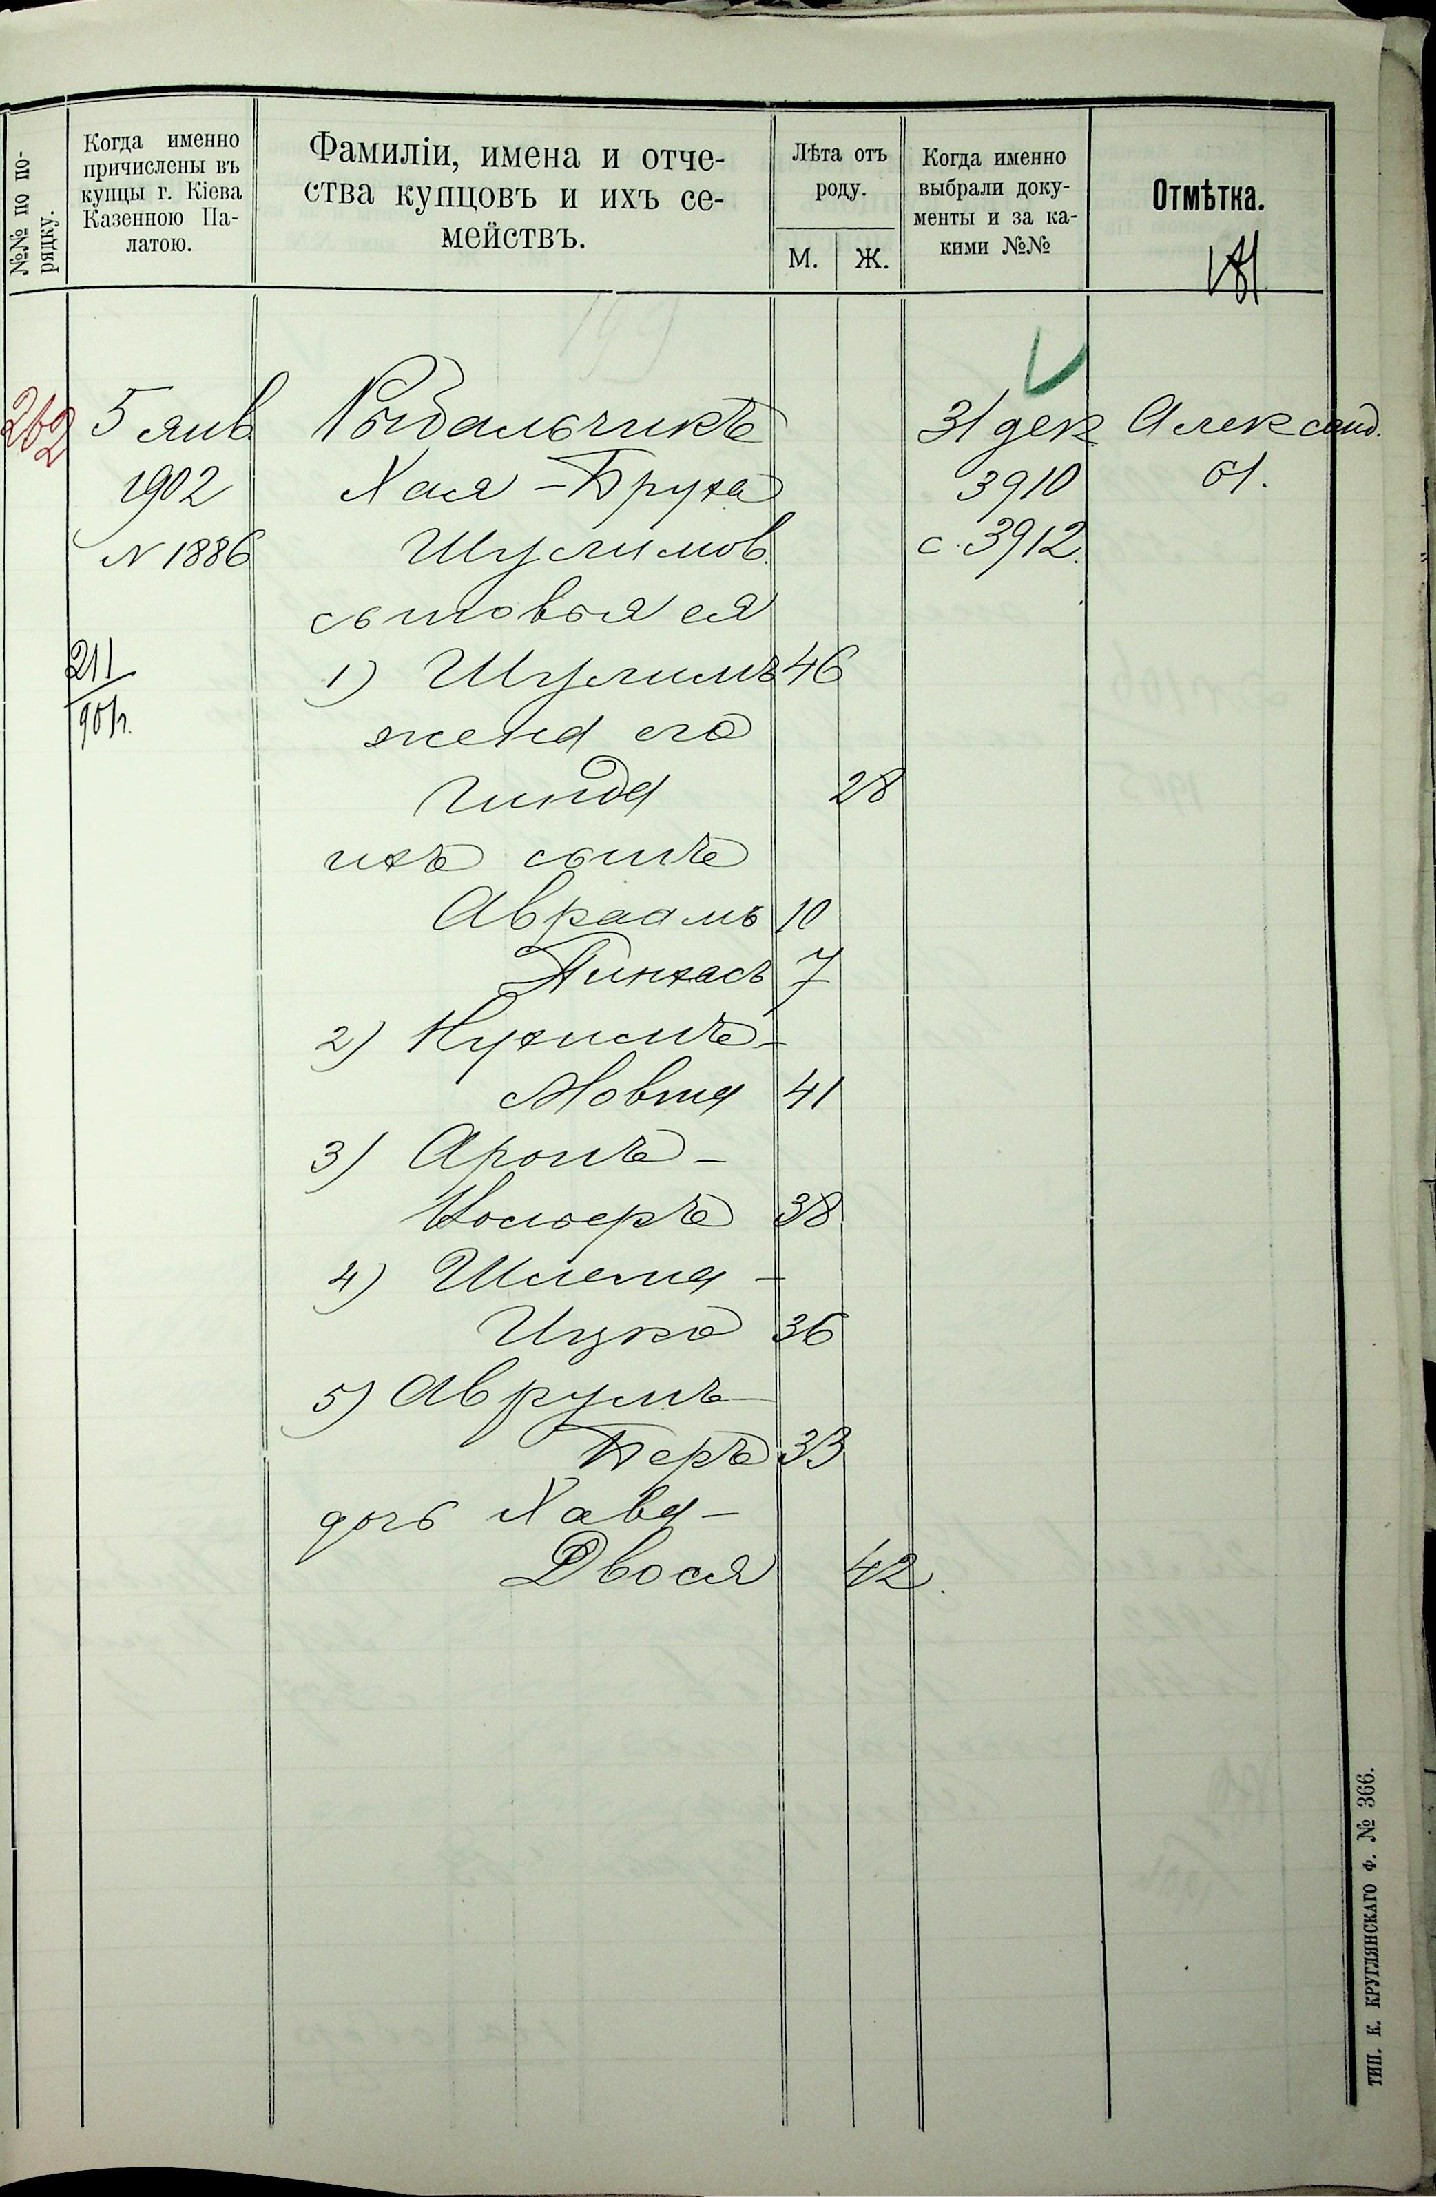 №№ по по-
рядку.
Когда именно
причислены въ
купцы г. Кіева
Казенною Па-
латою.
Фамиліи, имена и отче-
ства купцовъ и ихъ се-
мействъ.
Лѣта отъ
роду.
М.
Ж.
Когда именно
выбрали доку-
менты и за ка-
кими №№
Отмѣтка.
262
5 янв.
1902
N 1886
211
901 г.
Рыбальчикъ
Хая - Бруха
Шулимов.
сыновья ея
1) Шулимъ 46
жена его
Гинда 28
ихъ сынъ
Авраамъ 10
Пинхасъ 7
2) Нухимъ-
Мовша 41
3) Аронъ -
Иосьеръ 38
4) Шлема -
Ицко 36
5) Аврумъ-
Беръ 33
дочь Хава -
Двося 42
31 дек
3910
с. 3912.
Александ.
61.
ТИП. К. КРУГЛЯНСКАГО Ф. № 366.